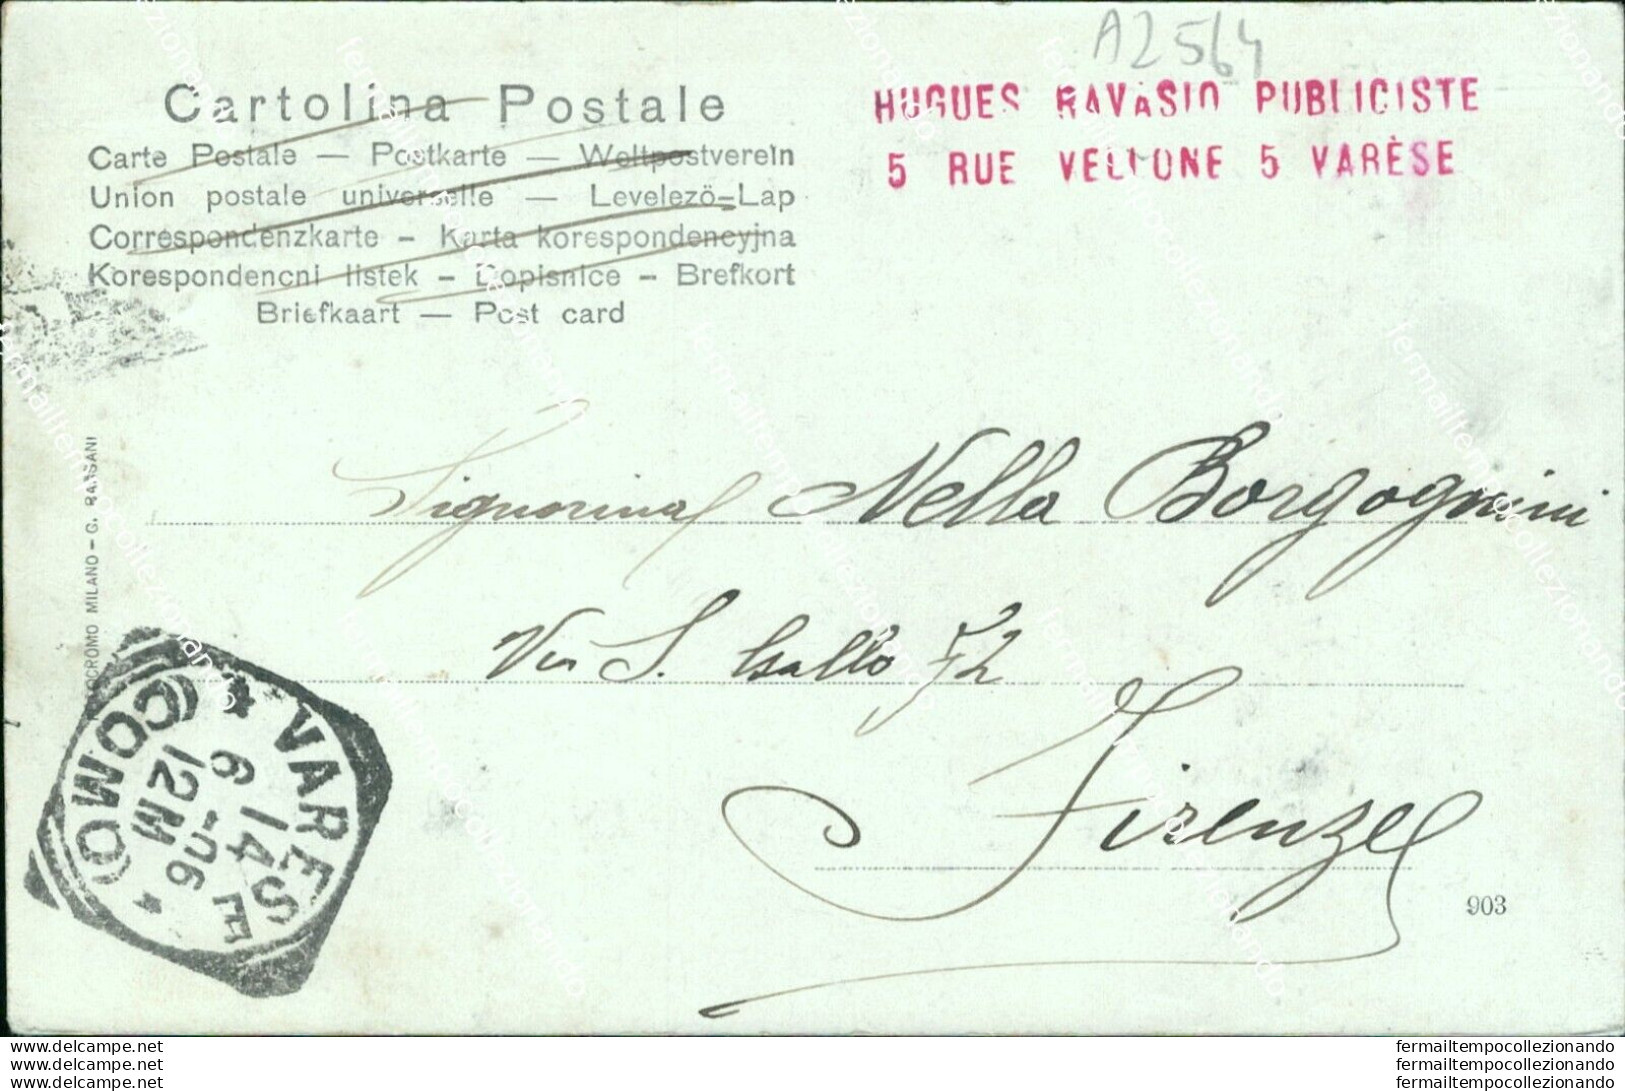 A2564
HUGUES RAVASIO PUBLICISTE
5 RUE VELLONE 5 VARÈSE
Cartolina Postale
Carte Postale — Postkarte — Weltpostverein
Union postale universelle — Levelezö-Lap
Correspondenzkarte – Karta korespondencyjna
Korespondencni listek – Dopisnice – Brefkort
Briefkaart — Post card
MILANO – G.
Signorina Nella Borgognini
Via S. Gallo 72
Firenze
903
VARESE
(COMO)
14 6 -06
12M
www.delcampe.net
www.delcampe.net
www.delcampe.net
fermailtempocollezionando
fermailtempocollezionando
fermailtempocollezionando